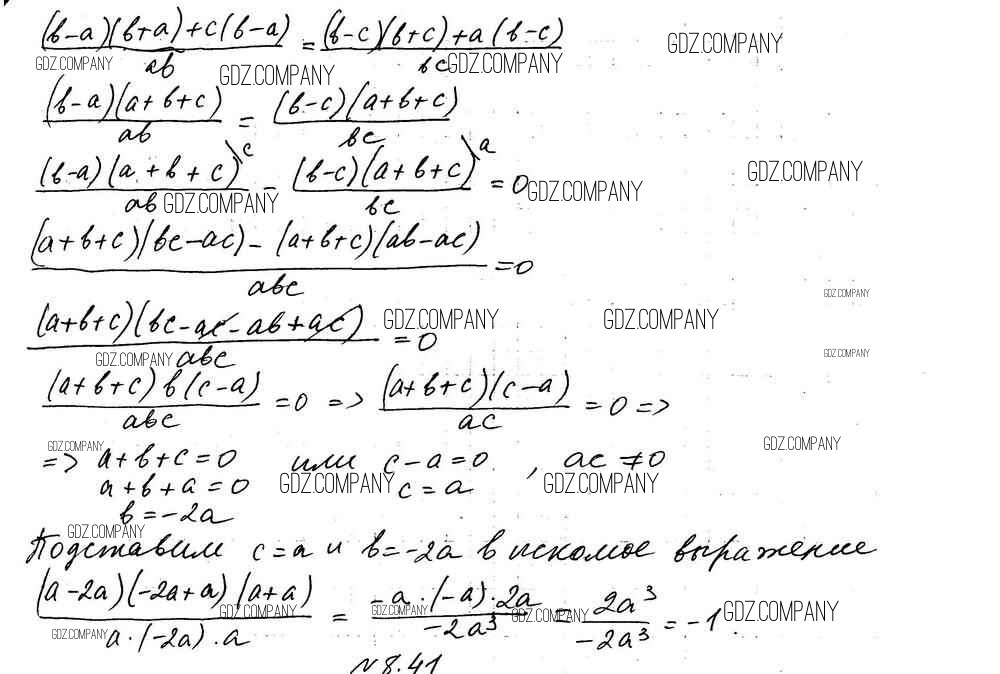 (b-a)(b+a)+c(b-a)/ab = (b-c)(b+c)+a(b-c)/bc GDZ.COMPANY
GDZ.COMPANY GDZ.COMPANY GDZ.COMPANY
(b-a)(a+b+c)/ab = (b-c)(a+b+c)/bc
(b-a)(a+b+c)\c/ab - (b-c)(a+b+c)\a/bc = 0 GDZ.COMPANY GDZ.COMPANY
GDZ.COMPANY
(a+b+c)(bc-ac)-(a+b+c)(ab-ac)/abc = 0
GDZ.COMPANY
(a+b+c)(bc-ac-ab+ac)/abc = 0 GDZ.COMPANY GDZ.COMPANY
GDZ.COMPANY GDZ.COMPANY
(a+b+c)b(c-a)/abc = 0 => (a+b+c)(c-a)/ac = 0 =>
GDZ.COMPANY GDZ.COMPANY
=> a+b+c=0 или c-a=0, ac≠0
a+b+a=0 GDZ.COMPANY c=a GDZ.COMPANY
b=-2a
GDZ.COMPANY
Подставим c=a и b=-2a в искомое выражение
(a-2a)(-2a+a)(a+a)/a·(-2a)·a = -a·(-a)·2a/-2a³ = 2a³/-2a³ = -1 GDZ.COMPANY
GDZ.COMPANY GDZ.COMPANY GDZ.COMPANY
N 8.41